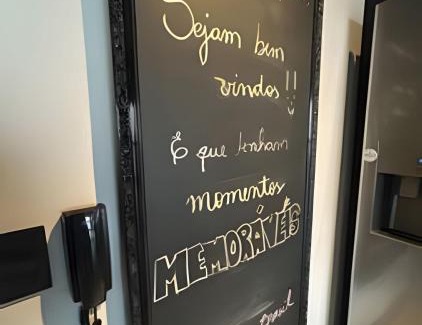 Sejam bem
vindos !!
E que tenham
momentos
MEMORÁVEIS
Brasil